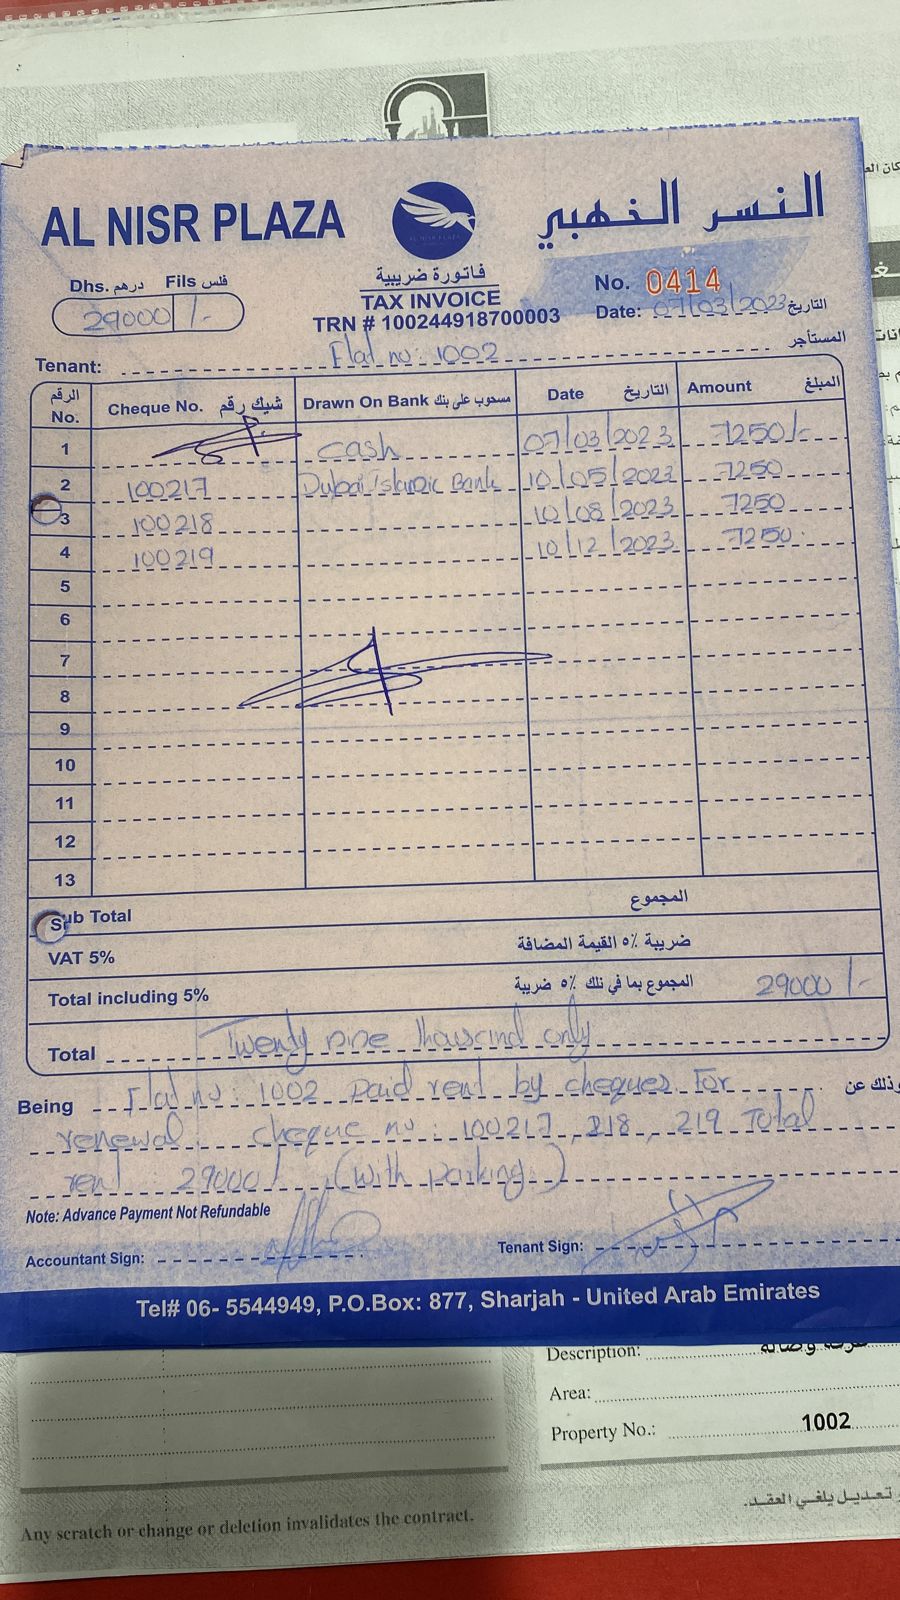 AL NISR PLAZA
النسر الذهبي
AL NISR PLAZA
Dhs. درهم Fils فلس
29000 /-
فاتورة ضريبية
TAX INVOICE
TRN # 100244918700003
No. 0414
Date: 07/03/2023 التاريخ
Tenant: Flat no: 1002 المستأجر
الرقم No. Cheque No. شيك رقم Drawn On Bank مسحوب على بنك Date التاريخ Amount المبلغ
1 cash 07/03/2023 7250/-
2 100217 Dubai Islamic Bank 10/05/2023 7250
3 100218 10/08/2023 7250
4 100219 10/12/2023 7250
5
6
7
8
9
10
11
12
13
Sub Total المجموع
VAT 5% ضريبة ٥٪ القيمة المضافة
Total including 5% المجموع بما في ذلك ٥٪ ضريبة 29000/-
Total Twenty nine thousand only
Being Flat no: 1002 paid rent by cheques For وذلك عن
renewal. cheque no: 100217, 218, 219 Total
rent 29000/ (with parking)
Note: Advance Payment Not Refundable
Accountant Sign: Tenant Sign:
Tel# 06- 5544949, P.O.Box: 877, Sharjah - United Arab Emirates
Description:
Area:
Property No.: 1002
تعديل يلغي العقد.
Any scratch or change or deletion invalidates the contract.